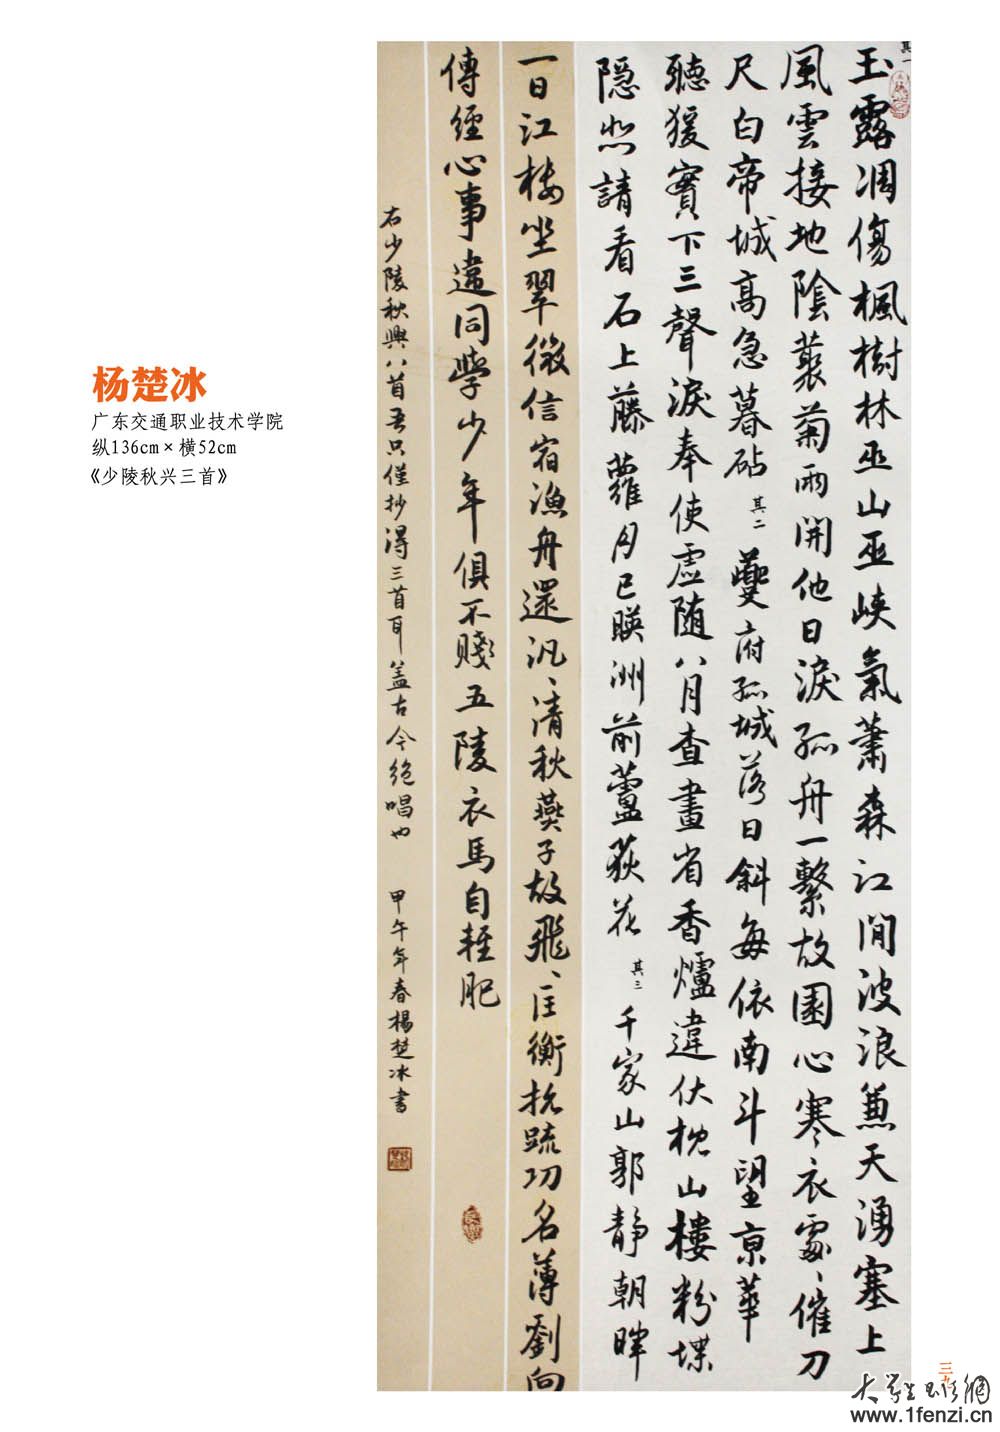 杨楚冰
广东交通职业技术学院
纵136cm×横52cm
《少陵秋兴三首》
其一
玉露凋傷楓樹林巫山巫峽氣蕭森江間波浪兼天湧塞上
風雲接地陰叢菊兩開他日淚孤舟一繫故園心寒衣處、催刀
尺白帝城高急暮砧 其二 夔府孤城落日斜每依南斗望京華
聽猿實下三聲淚奉使虛随八月查畫省香爐違伏枕山樓粉堞
隐悲請看石上藤蘿月已暎洲前蘆荻花 其三 千家山郭靜朝暉
一日江楼坐翠微信宿漁舟還汎、清秋燕子故飛、匡衡抗疏功名薄劉向
傳經心事違同學少年俱不賤五陵衣馬自輕肥
右少陵秋興八首吾只僅抄得三首耳蓋古今絕唱也 甲午年春楊楚冰書
三九
大学生书法網
www.1fenzi.cn